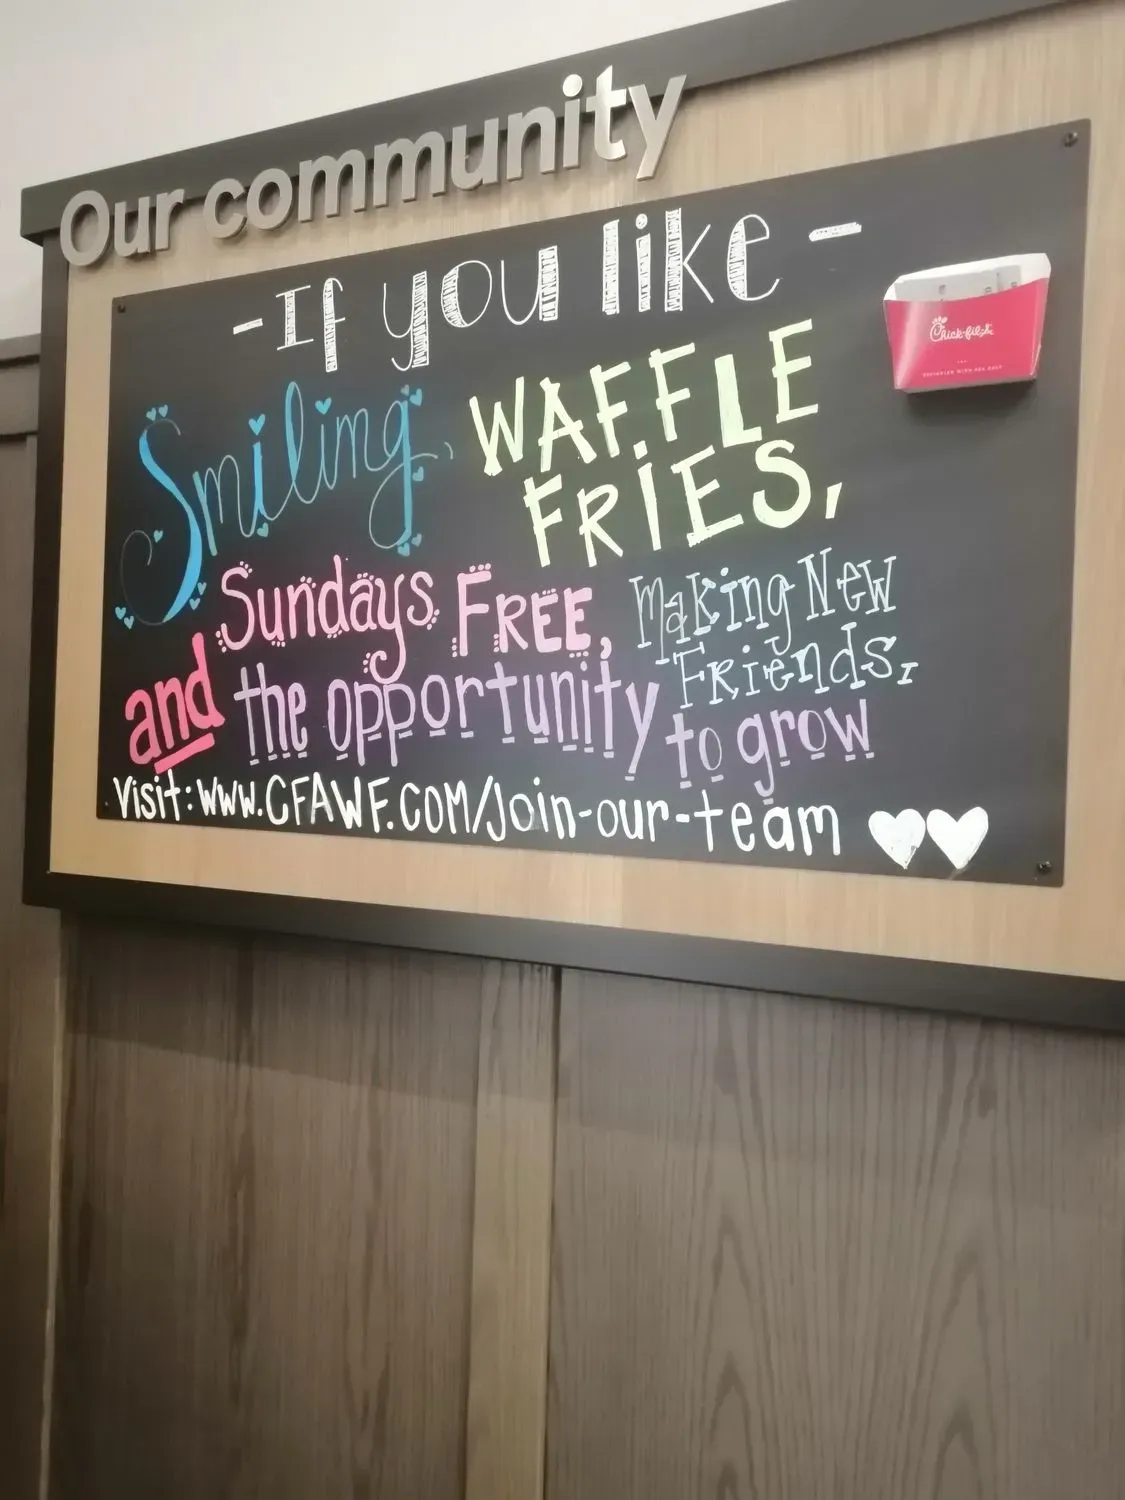 Our community
- If you like -
Smiling, WAFFLE
FRIES,
Sundays FREE, Making New
Friends,
and the opportunity to grow
Visit: www.CFAWF.COM/Join-our-team
Chick-fil-A